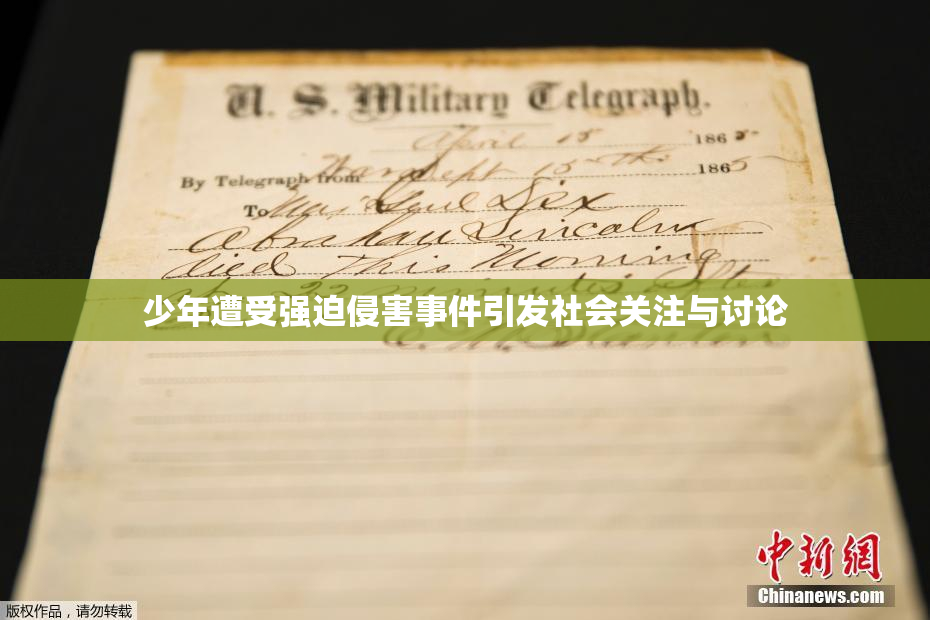 U. S. Military Telegraph.
April 15 1865
By Telegraph from War Dept 15th 1865
To Maj Genl Dix
Abraham Lincoln
died This Morning
at 22 minutes after
少年遭受强迫侵害事件引发社会关注与讨论
E. M. Stanton
中新網
Chinanews.com
版权作品，请勿转载